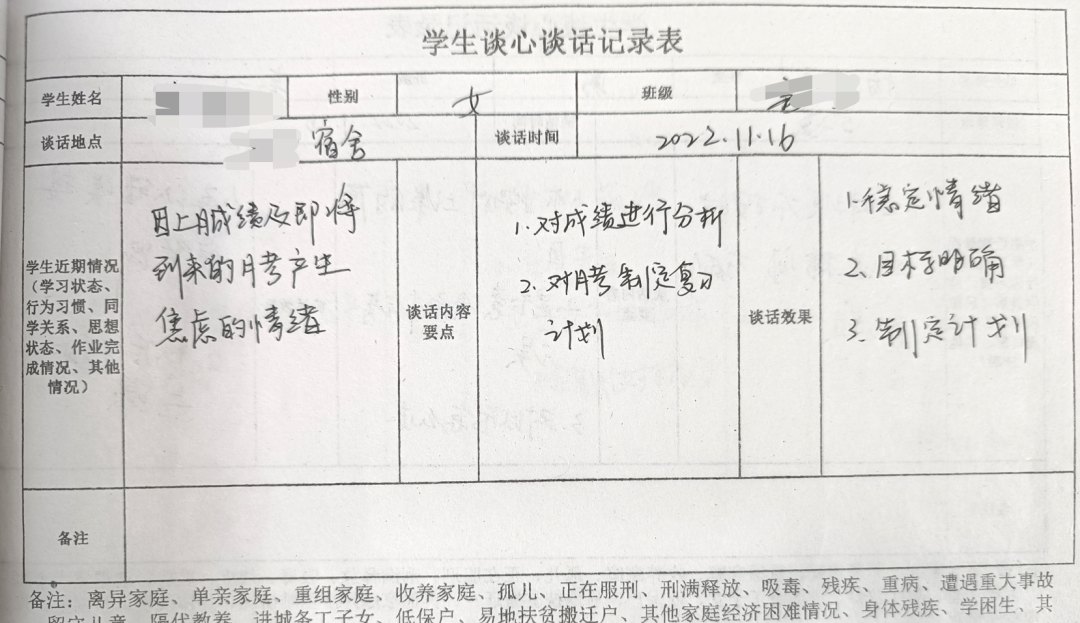 学生谈心谈话记录表
学生姓名
性别
女
班级
谈话地点
宿舍
谈话时间
2022.11.16
学生近期情况
（学习状态、
行为习惯、同
学关系、思想
状态、作业完
成情况、其他
情况）
因上月成绩及即将
到来的月考产生
焦虑的情绪
谈话内容
要点
1.对成绩进行分析
2.对月考制定复习
计划
谈话效果
1.稳定情绪
2.目标明确
3.制定计划
备注
备注：离异家庭、单亲家庭、重组家庭、收养家庭、孤儿、正在服刑、刑满释放、吸毒、残疾、重病、遭遇重大事故
留守儿童、隔代教养、进城务工子女、低保户、易地扶贫搬迁户、其他家庭经济困难情况、身体残疾、学困生、其